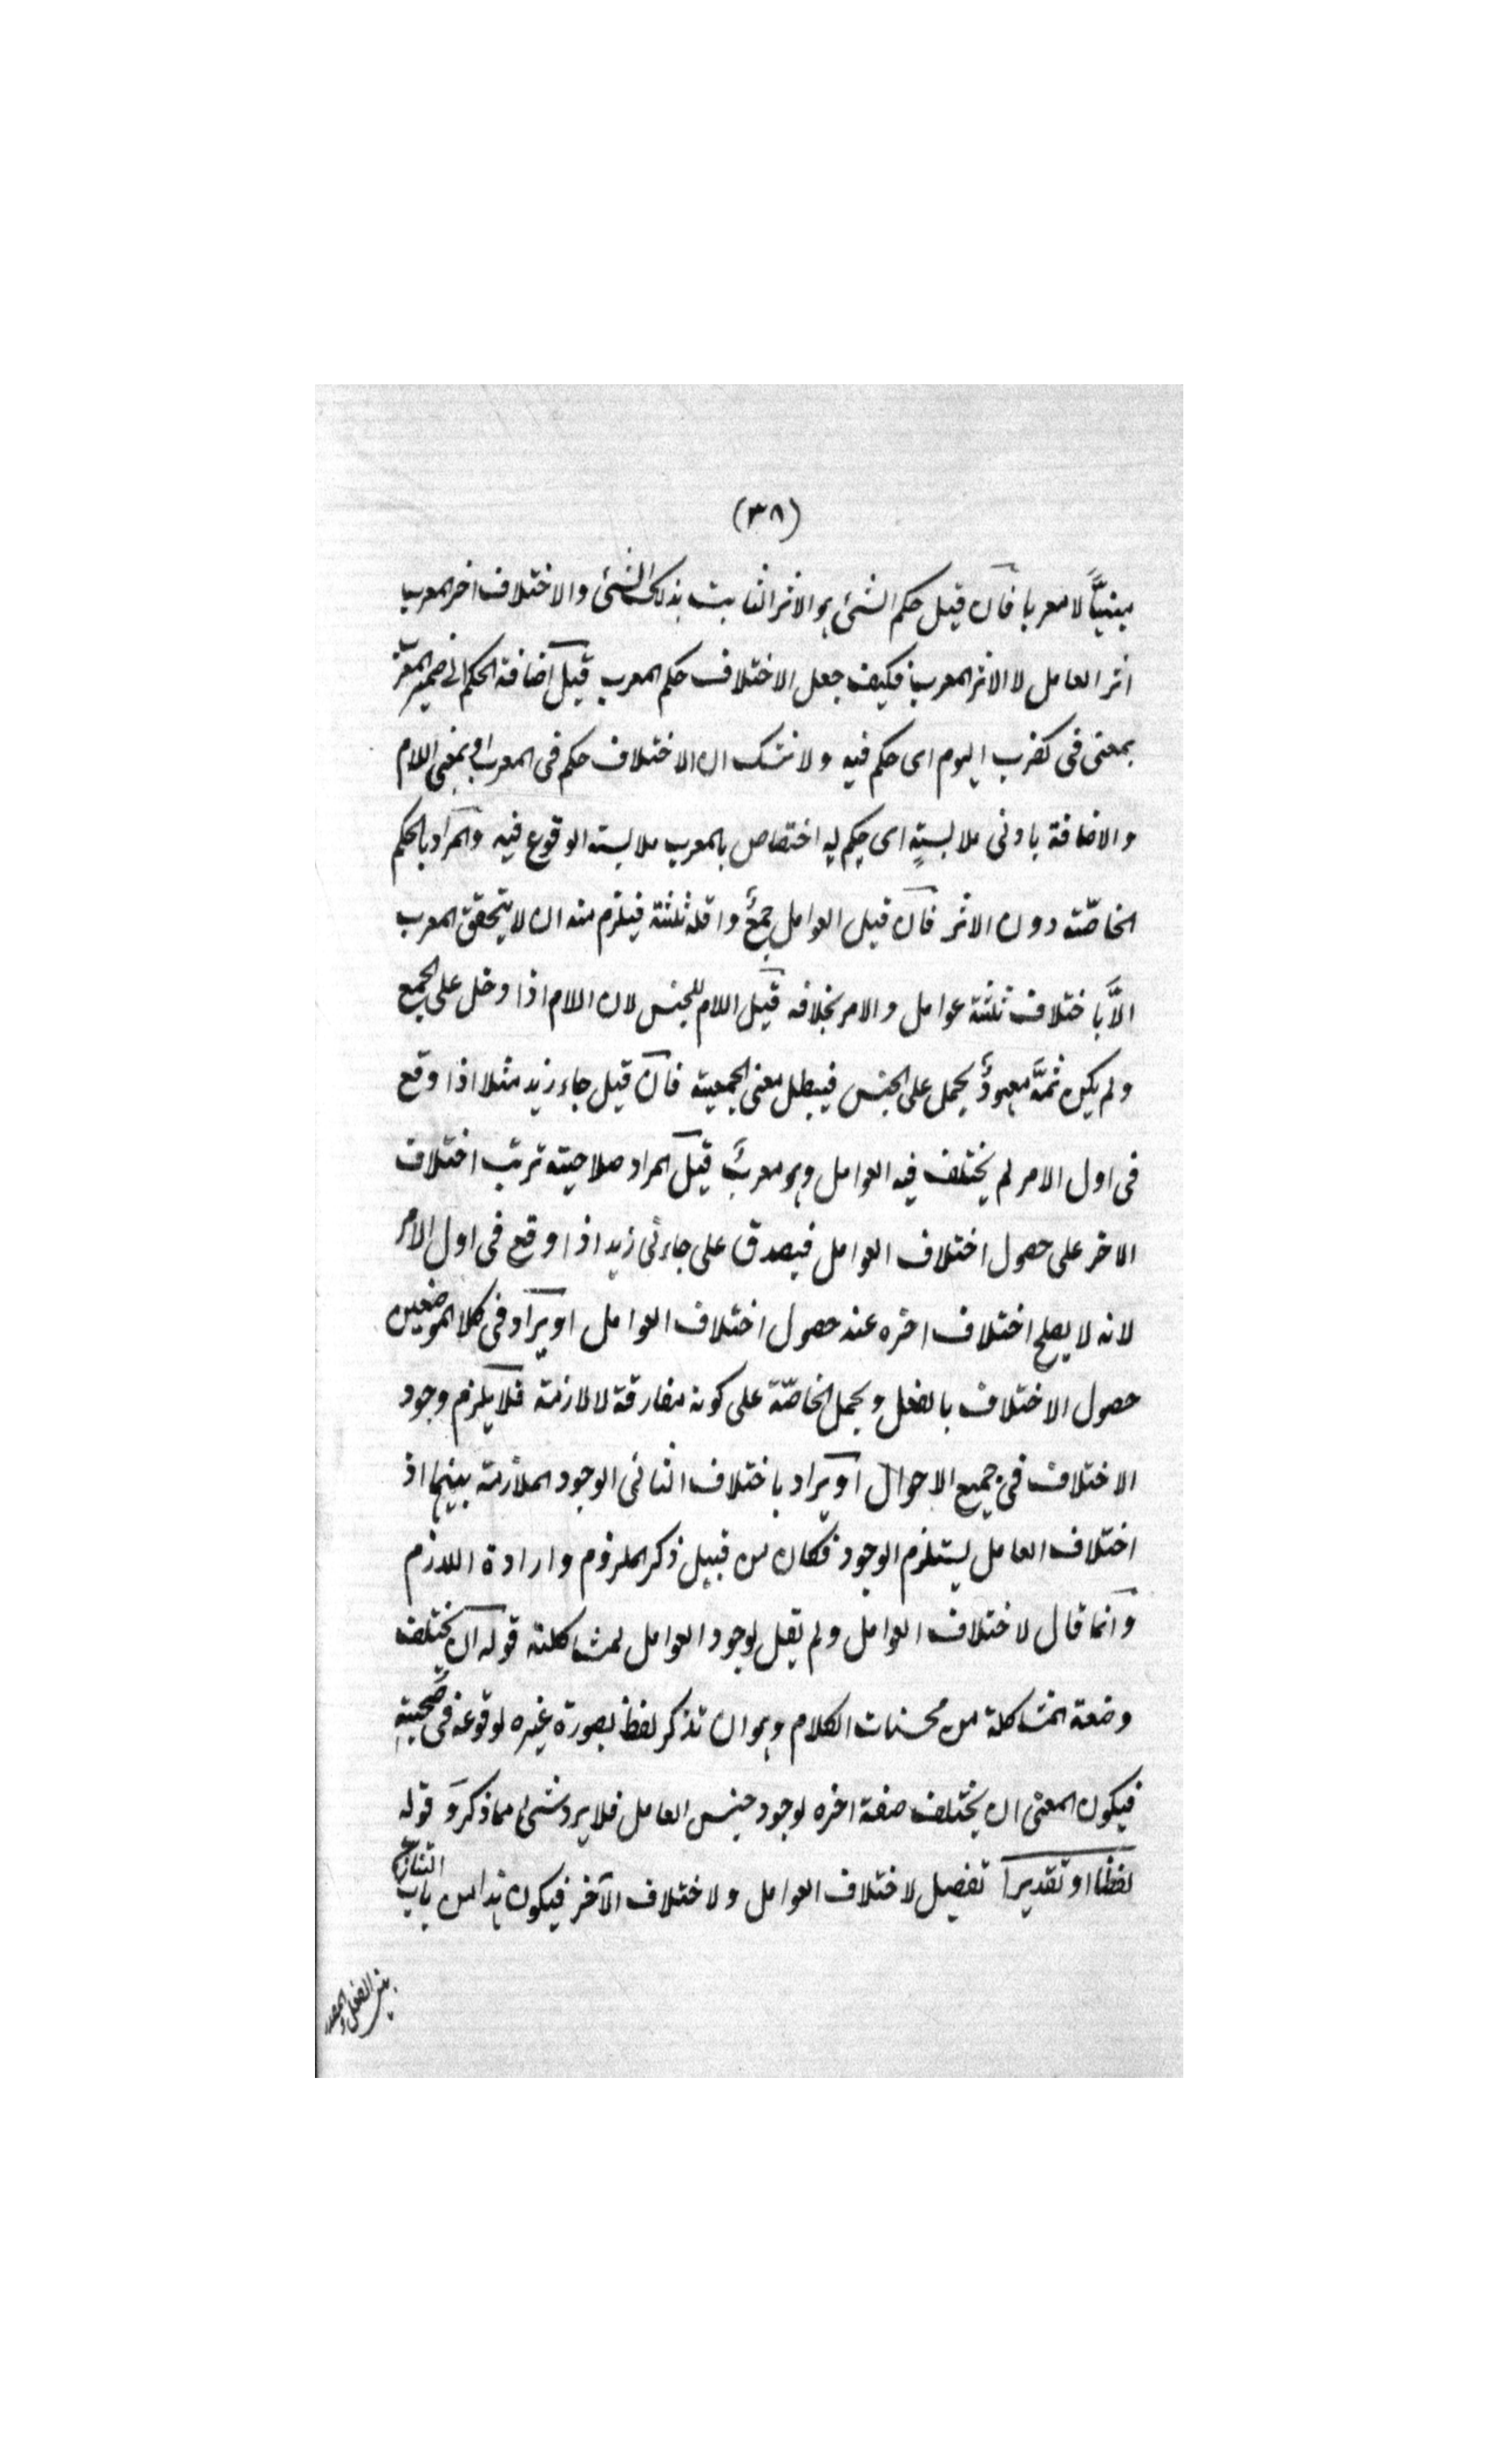 (٣٨)
مبنيًّا لا معربا فان قيل حكم الشئ هو الاثر الثابت بذلك الشئ والاختلاف اخر المعرب
اثر العامل لا الاثر المعرب فكيف جعل الاختلاف حكم المعرب قيل اضافة الحكم الى ضمير المعرب
بمعنى فى كضرب اليوم اى حكم فيه ولا شك ان الاختلاف حكم فى المعرب او بمعنى اللام
والاضافة بادنى ملابسةٍ اى حكم له اختصاص بالمعرب ملابسة الوقوع فيه والمراد بالحكم
الخاصّة دون الاثر فان قيل العوامل جمعٌ واقله ثلثة فيلزم منه ان لا يتحقق المعرب
الَّا باختلاف ثلثة عوامل والامر بخلافه قيل اللام للجنس لان اللام اذا دخل على الجمع
ولم يكن ثمَّه معهودٌ يحمل على الجنس فيبطل معنى الجمعية فان قيل جاء زيد مثلا اذا وقع
فى اول الامر لم يختلف فيه العوامل وهو معربٌ قيل المراد صلاحية ترتب اختلاف
الاخر على حصول اختلاف العوامل فيصدق على جاءنى زيد اذا وقع فى اول الامر
لانه لا يصلح اختلاف اخره عند حصول اختلاف العوامل او يراد فى كلا الموضعين
حصول الاختلاف بالفعل ويحمل الخاصّة على كونه مفارقة لا لازمة فلا يلزم وجود
الاختلاف فى جميع الاحوال او يراد باختلاف الثانى الوجود الملازمة بينهما اذ
اختلاف العامل يستلزم الوجود فكان من قبيل ذكر الملزوم وارادة اللازم
وانما قال لاختلاف العوامل ولم يقل لوجود العوامل لمشاكلته قوله ان يختلف
وصنعة المشاكلة من محسنات الكلام وهو ان تذكر لفظ بصورة غيره لوقوعه فى صحبته
فيكون المعنى ان يختلف صفة اخره لوجود جنس العامل فلا يرد شئ مما ذكر وقوله
لفظا او تقديرا تفصيل لاختلاف العوامل ولاختلاف الآخر فيكون هذا من باب التنازع
بين الفعل والمصدر